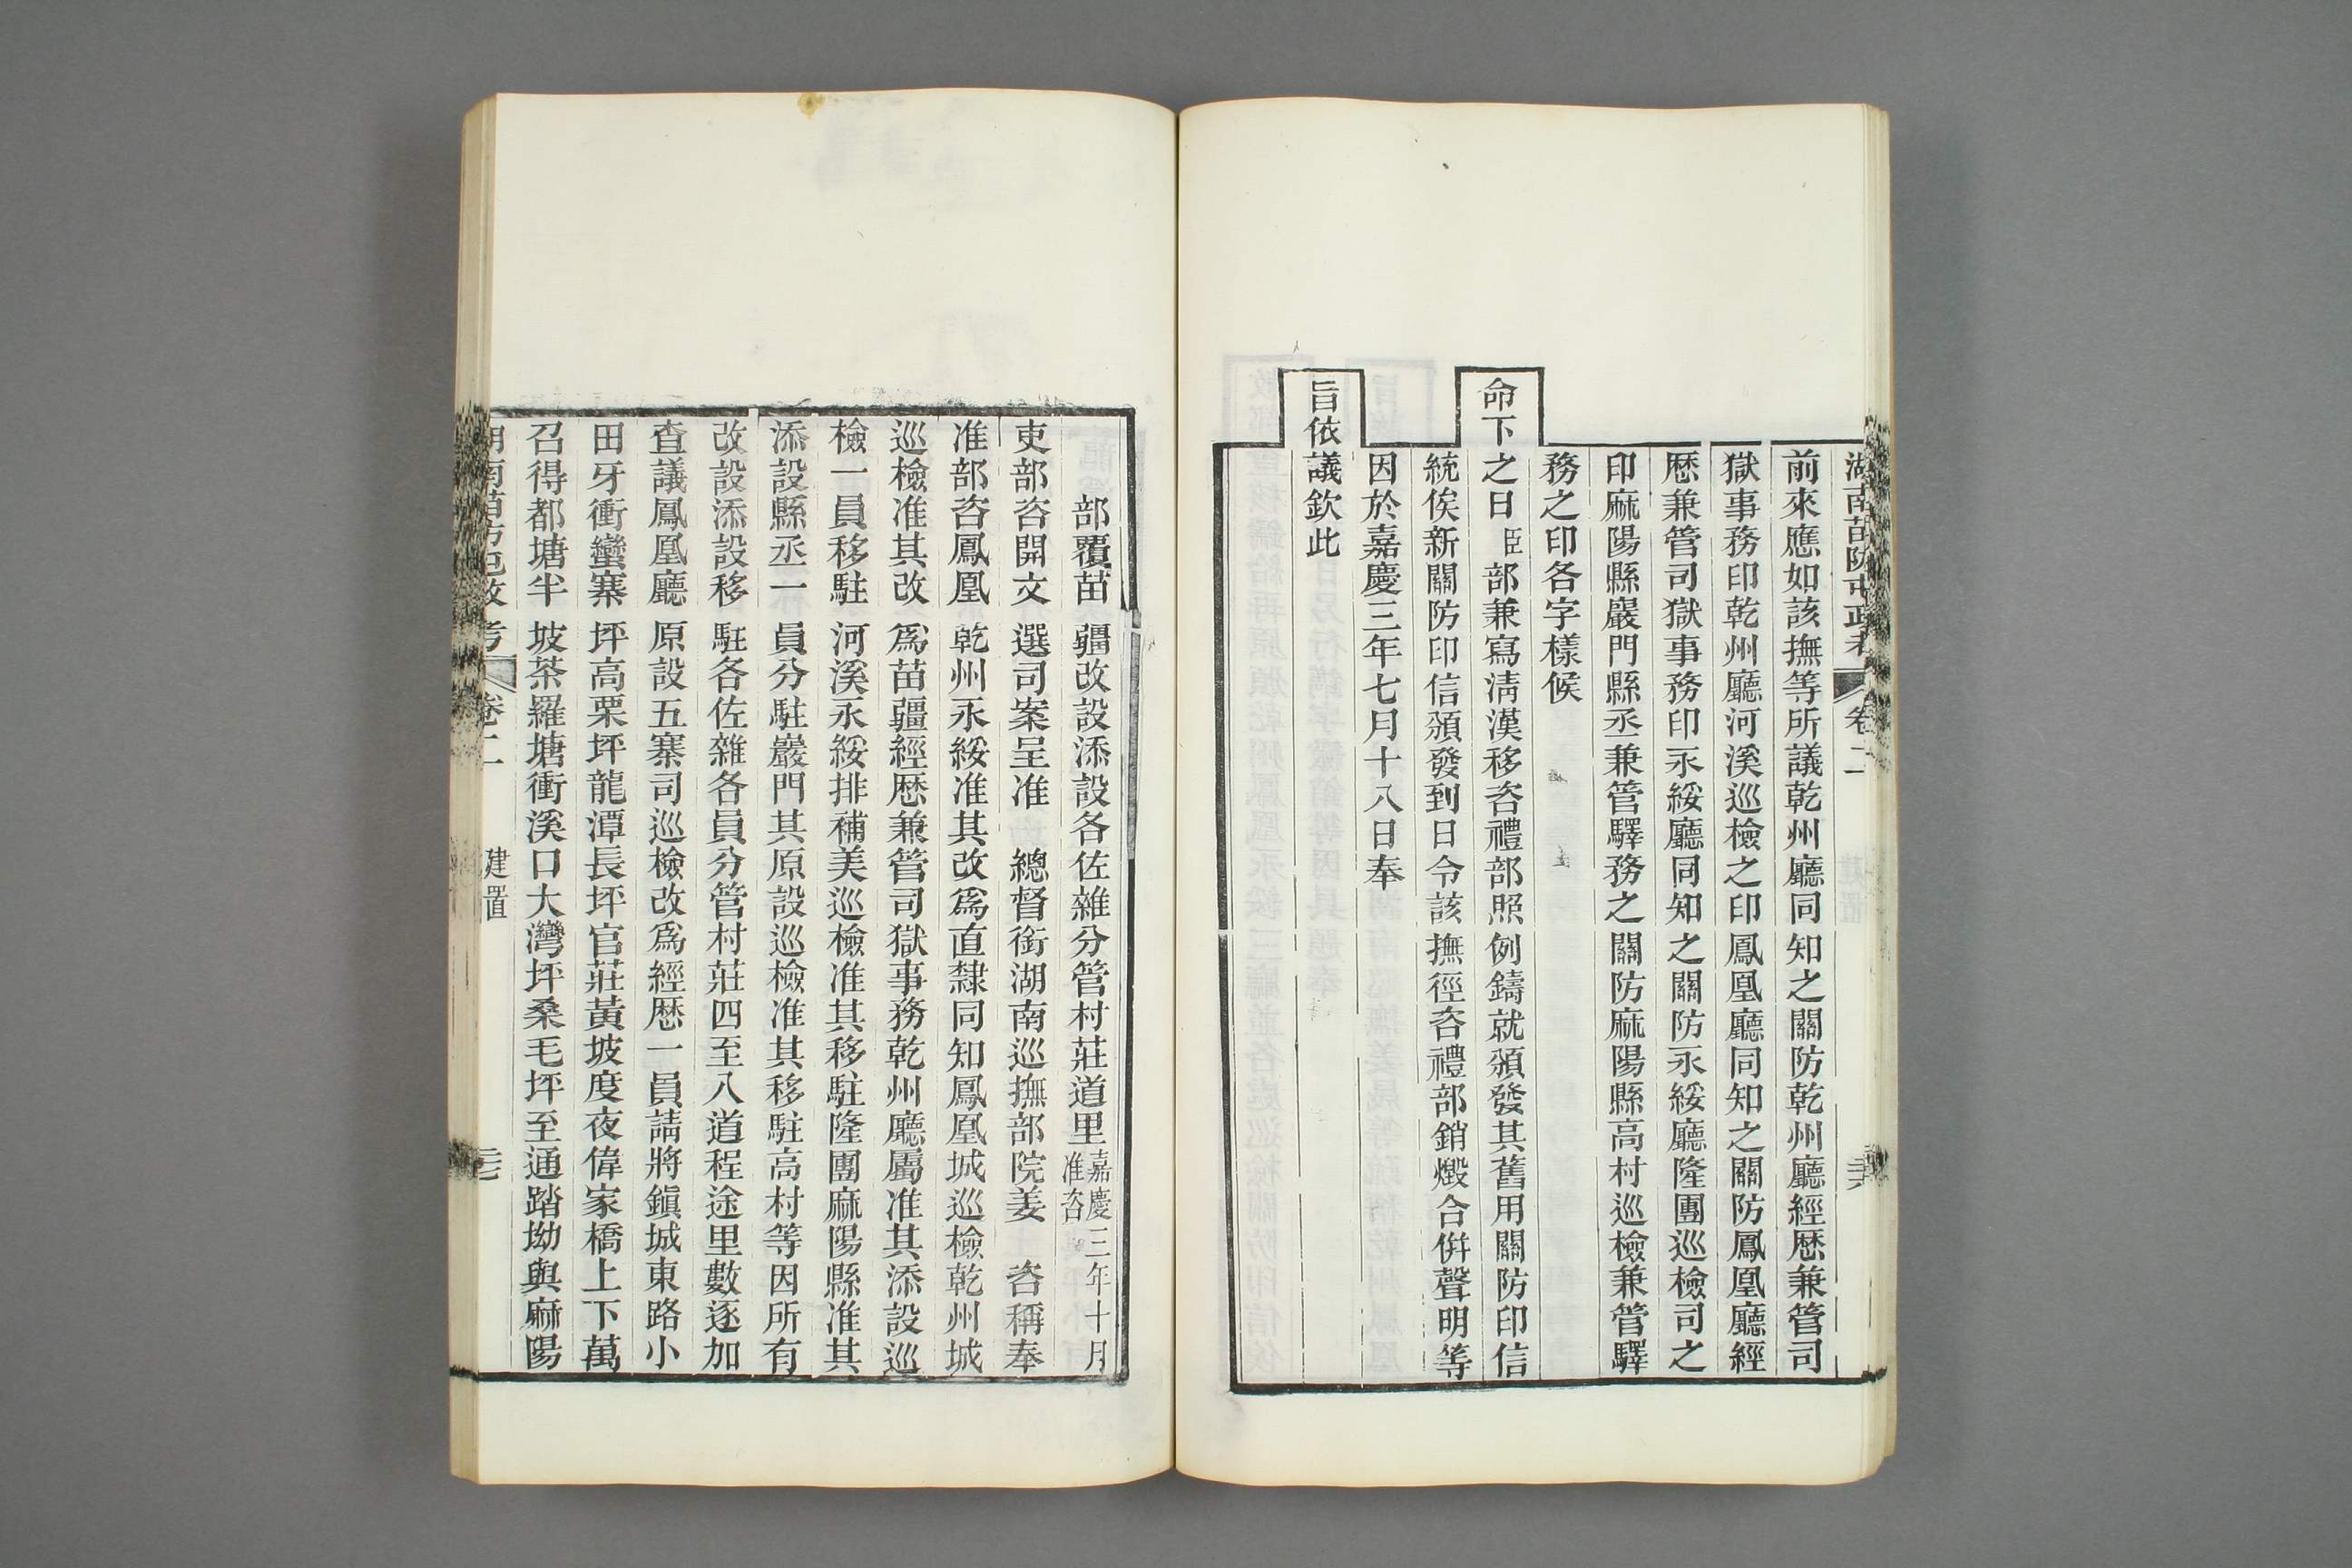 湖南苗防屯政考 卷二
前來應如該撫等所議乾州廳同知之關防乾州廳經歷兼管司
獄事務印乾州廳河溪巡檢之印鳳凰廳同知之關防鳳凰廳經
歷兼管司獄事務印永綏廳同知之關防永綏廳隆團巡檢司之
印麻陽縣巖門縣丞兼管驛務之關防麻陽縣高村巡檢兼管驛
務之印各字樣候
命下之日臣部兼寫淸漢移咨禮部照例鑄就頒發其舊用關防印信
統俟新關防印信頒發到日令該撫徑咨禮部銷燬合併聲明等
因於嘉慶三年七月十八日奉
旨依議欽此
部覆苗疆改設添設各佐雜分管村莊道里嘉慶三年十月准咨
吏部咨開文選司案呈准總督銜湖南巡撫部院姜咨稱奉
准部咨鳳凰乾州永綏准其改爲直隸同知鳳凰城巡檢乾州城
巡檢准其改爲苗疆經歷兼管司獄事務乾州廳屬准其添設巡
檢一員移駐河溪永綏排補美巡檢准其移駐隆團麻陽縣准其
添設縣丞一員分駐巖門其原設巡檢准其移駐高村等因所有
改設添設移駐各佐雜各員分管村莊四至八道程途里數逐加
查議鳳凰廳原設五寨司巡檢改爲經歷一員請將鎭城東路小
田牙衝蠻寨坪高栗坪龍潭長坪官莊黃坡度夜偉家橋上下萬
召得都塘半坡茶羅塘衝溪口大灣坪桑毛坪至通踏坳與麻陽
湖南苗防屯政考 卷二 建置